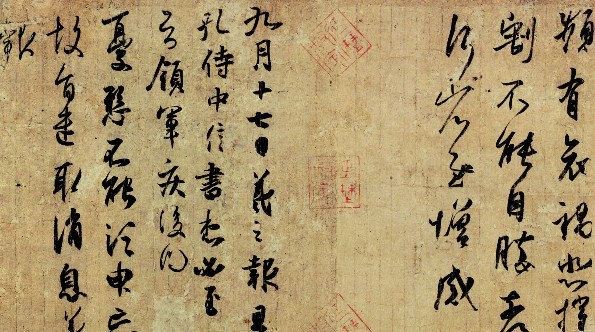 頻有哀禍悲摧
割不能自勝奈
何省慰增感
九月十七日羲之報且
孔侍中信書想必至
知領軍疾後問
憂懸不能須臾忘
故旨遣取消息羲
報